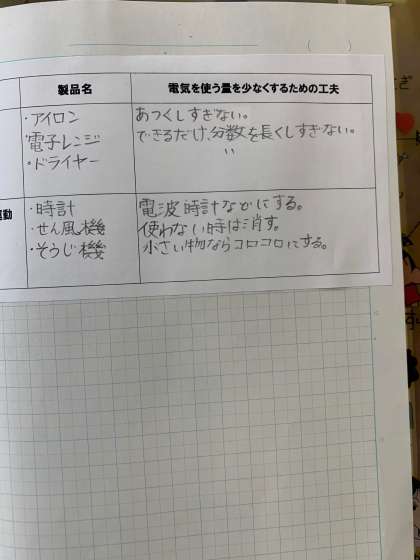 製品名 電気を使う量を少なくするための工夫
・アイロン あつくしすぎない。
電子レンジ できるだけ、分数を長くしすぎない。
・ドライヤー 〃
動
・時計 電波時計などにする。
・せん風機 使わない時は消す。
・そうじ機 小さい物ならコロコロにする。